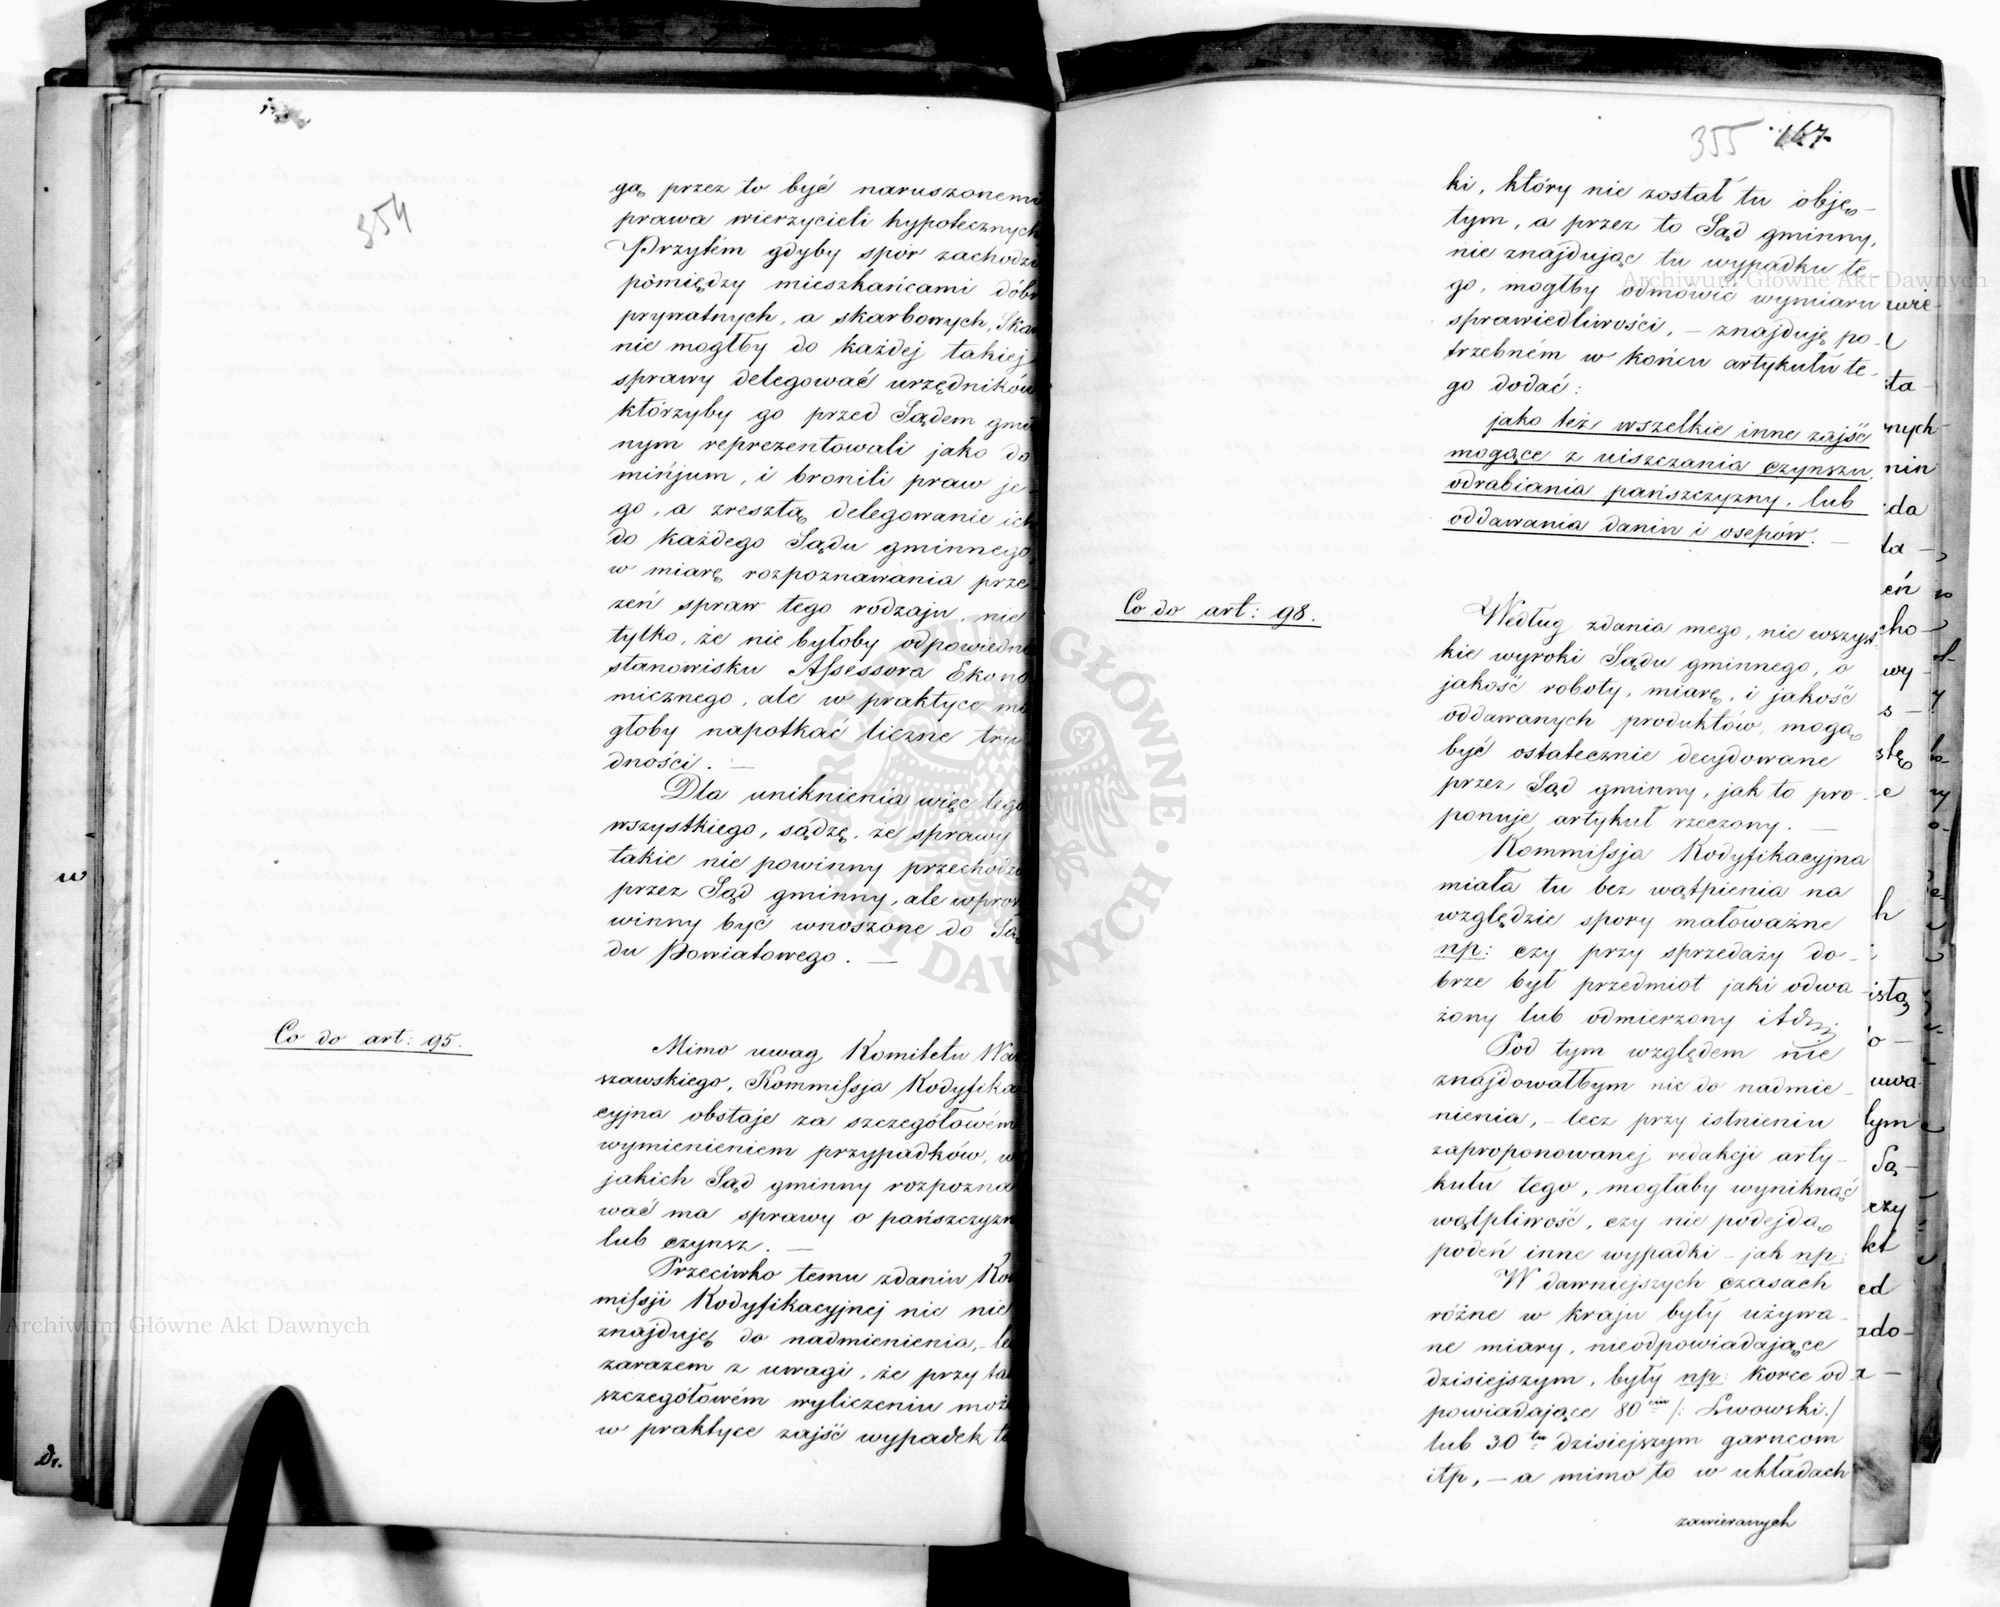 354
gą przez to być naruszonemi
prawa wierzycieli hypotecznych
Przytém gdyby spór zachodzi
pómiędzy mieszkańcami dóbr
prywatnych, a skarbowych, Skar
nie mogłby do każdej takiej
sprawy delegować urzędników
którzyby go przed Sądem gmi
nym reprezentowali jako do
minjum, i bronili praw je-
go, a zresztą delegowanie ich
do każdego Sądu gminnego,
w miarę rozpoznawania prze
zeń spraw tego rodzaju, nie
tylko, że nie byłoby odpowiedni
stanowisku Assessora Ekono
micznego, ale w praktyce mo
głoby napotkać liczne tru
dności. —
Dla uniknienia więc tego
wszystkiego, sądzę, że sprawy
takie nie powinny przechodzi
przez Sąd gminny, ale wpros
winny być wnoszone do Są
du Powiatowego. —
Co do art: 95.
Mimo uwag Komitetu War
szawskiego, Kommissja Kodyfika
cyjna obstaje za szczegółowém
wymienieniem przypadków, w
jakich Sąd gminny rozpozna
wać ma sprawy o pańszczyzn
lub czynsz. —
Przeciwko temu zdaniu Kom
missji Kodyfikacyjnej nic nie
znajduję do nadmienienia, – le
zarazem z uwagi, że przy ta
szczegółowém wyliczeniu moż
w praktyce zajść wypadek ta
355 167
ki, który nie został tu obję-
tym, a przez to Sąd gminny,
nie znajdując tu wypadku te-
go, mogłby odmówić wymiaru
sprawiedliwości, – znajduję po-
trzebném w końcu artykułu te-
go dodać:
jako też wszelkie inne zajść
mogące z uiszczania czynszu,
odrabiania pańszczyzny, lub
oddawania danin i osepów. —
Co do art: 98.
Według zdania mego, nie wszyst-
kie wyroki Sądu gminnego, o
jakość roboty, miarę, i jakość
oddawanych produktów, mogą
być ostatecznie decydowane
przez Sąd gminny, jak to pro-
ponuje artykuł rzeczony. —
Kommissja Kodyfikacyjna
miała tu bez wątpienia na
względzie spory małoważne
np: czy przy sprzedaży do-
brze był przedmiot jaki odwa
żony lub odmierzony itd:
Pod tym względem nie
znajdowałbym nic do nadmie-
nienia, – lecz przy istnieniu
zaproponowanej redakcji arty-
kułu tego, mogłaby wyniknąć
wątpliwość, czy nie podejdą
podeń inne wypadki – jak np:
W dawniejszych czasach
różne w kraju były używa-
ne miary, nieodpowiadające
dzisiejszym, były np: korce od
powiadające 80ciu /: Lwowski :/
lub 30tu dzisiejszym garncom
itp, – a mimo to w układach
zawieranych
Archiwum Główne Akt Dawnych
Archiwum Główne Akt Dawnych
ARCHIWUM GŁÓWNE AKT DAWNYCH